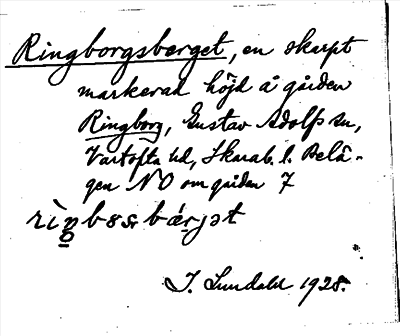 Ringborgsberget, en skarpt
markerad höjd å gården
Ringborg, Gustav Adolfs sn,
Vartofta hd, Skarab. l. Belä-
gen NO om gården 7
I. Lundahl 1928.